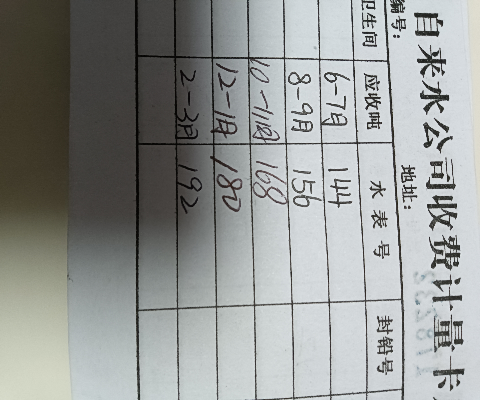 自来水公司收费计量卡
编号：
地址：
卫生间 应收吨 水表号 封铅号
6-7月 144
8-9月 156
10-11月 168
12-1月 180
2-3月 192